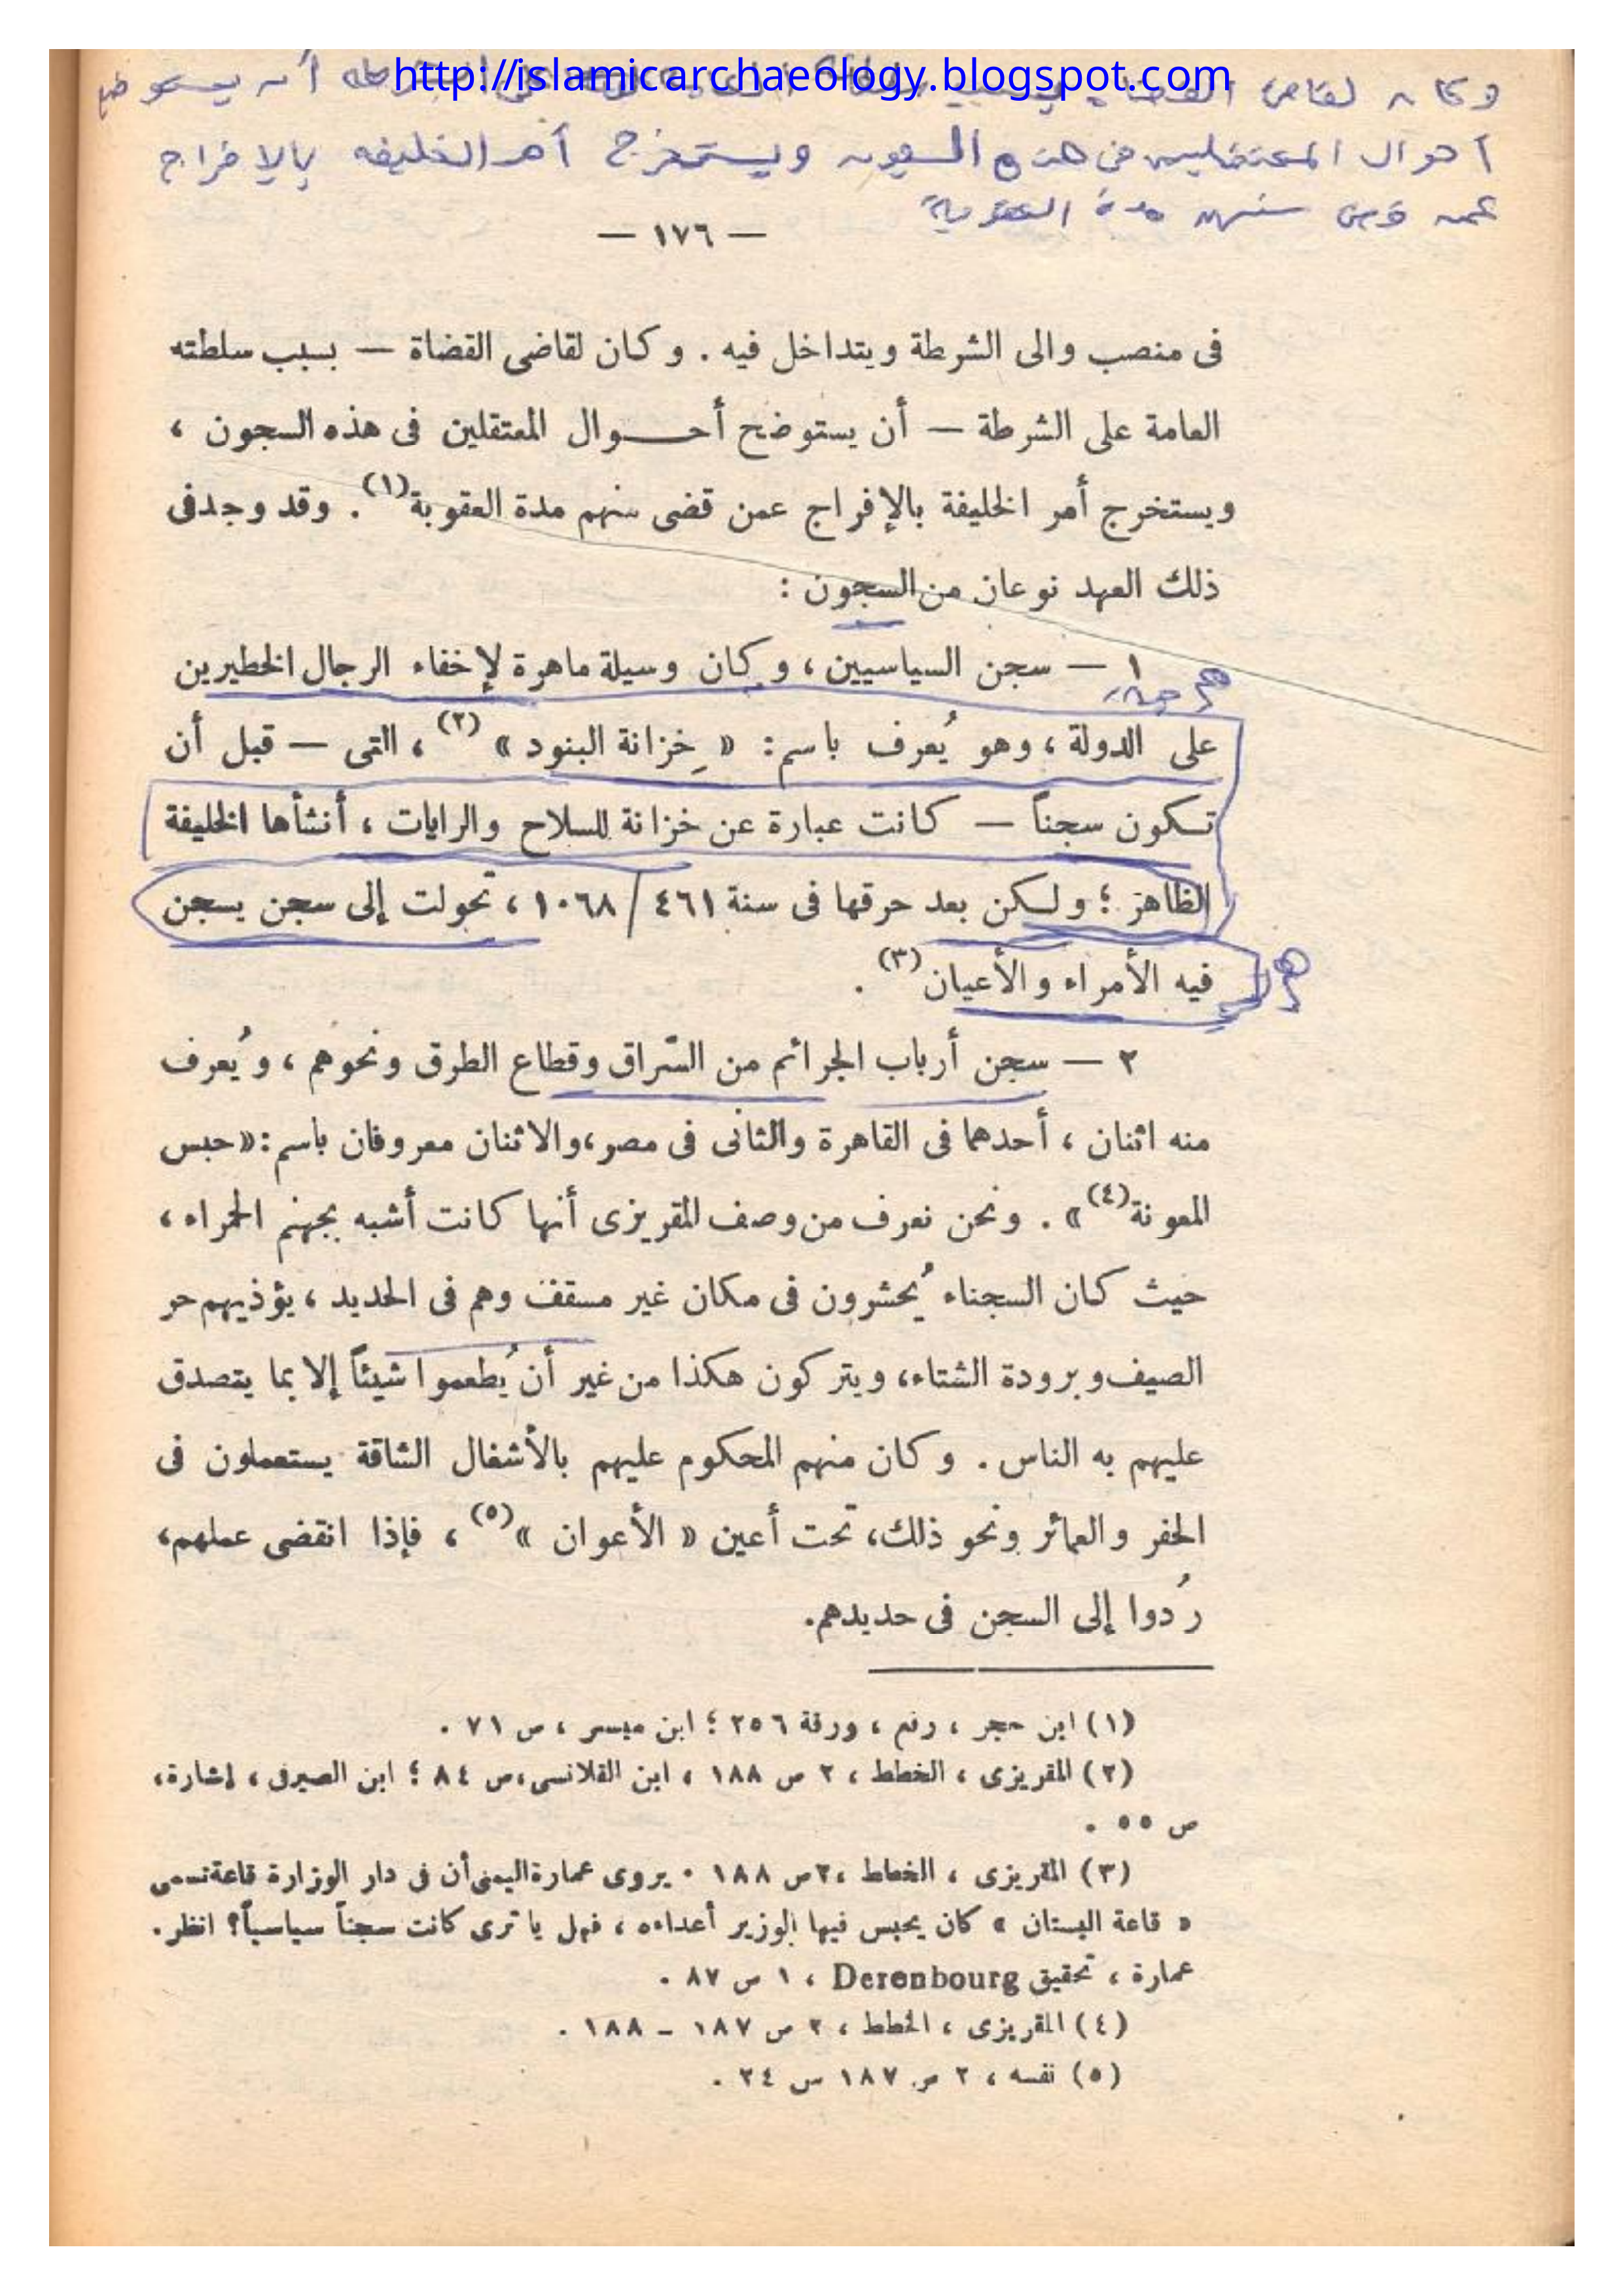 http://islamicarchaeology.blogspot.com
وكان لقاضى القضاة بسبب سلطته العامة على الشرطة أن يستوضح
احوال المعتقلين فى هذه السجون ويستخرج أمر الخليفه بالإفراج
عمن قضى منهم مدة العقوبة
— ١٧٦ —
فى منصب والى الشرطة ويتداخل فيه . وكان لقاضى القضاة — بسبب سلطته
العامة على الشرطة — أن يستوضح أحــوال المعتقلين فى هذه السجون ،
ويستخرج أمر الخليفة بالإفراج عمن قضى منهم مدة العقوبة(١). وقد وجد فى
ذلك العهد نوعان من السجون :
١ — سجن السياسيين ، وكان وسيلة ماهرة لإخفاء الرجال الخطيرين
على الدولة ، وهو يُعرف باسم : « خِزانة البنود »(٢) ، التى — قبل أن
تكون سجناً — كانت عبارة عن خزانة للسلاح والرايات ، أنشأها الخليفة
الظاهر ؛ ولكن بعد حرقها فى سنة ٤٦١/ ١٠٦٨ ، تحولت إلى سجن يسجن
فيه الأمراء والأعيان(٣) .
٢ — سجن أرباب الجرائم من السّراق وقطاع الطرق ونحوهم ، ويُعرف
منه اثنان ، أحدهما فى القاهرة والثانى فى مصر ، والاثنان معروفان باسم : « حبس
المعونة(٤)» . ونحن نعرف من وصف المقريزى أنها كانت أشبه بجهنم الحمراء ،
حيث كان السجناء يُحشرون فى مكان غير مسقف وهم فى الحديد ، يؤذيهم حر
الصيف وبرودة الشتاء، ويتركون هكذا من غير أن يُطعموا شيئاً إلا بما يتصدق
عليهم به الناس . وكان منهم المحكوم عليهم بالأشغال الشاقة يستعملون فى
الحفر والعمائر ونحو ذلك، تحت أعين « الأعوان »(٥) ، فإذا انقضى عملهم،
رُدوا إلى السجن فى حديدهم.
(١) ابن حجر ، رفع ، ورقة ٢٥٦ ؛ ابن ميسر ، ص ٧١ .
(٢) المقريزى ، الخطط ، ٢ ص ١٨٨ ، ابن القلانسى ، ص ٨٤ ؛ ابن الصيرفى ، إشارة،
ص ٥٥ .
(٣) المقريزى ، الخطط ، ٢ص ١٨٨ . يروى عمارة اليمنى أن فى دار الوزارة قاعة تسمى
« قاعة البستان » كان يحبس فيها الوزير أعداءه ، فهل يا ترى كانت سجناً سياسياً؟ انظر.
عمارة ، تحقيق Derenbourg ، ١ ص ٨٧ .
(٤) المقريزى ، الخطط ، ٢ ص ١٨٧ – ١٨٨ .
(٥) نفسه ، ٢ ص ١٨٧ س ٢٤ .